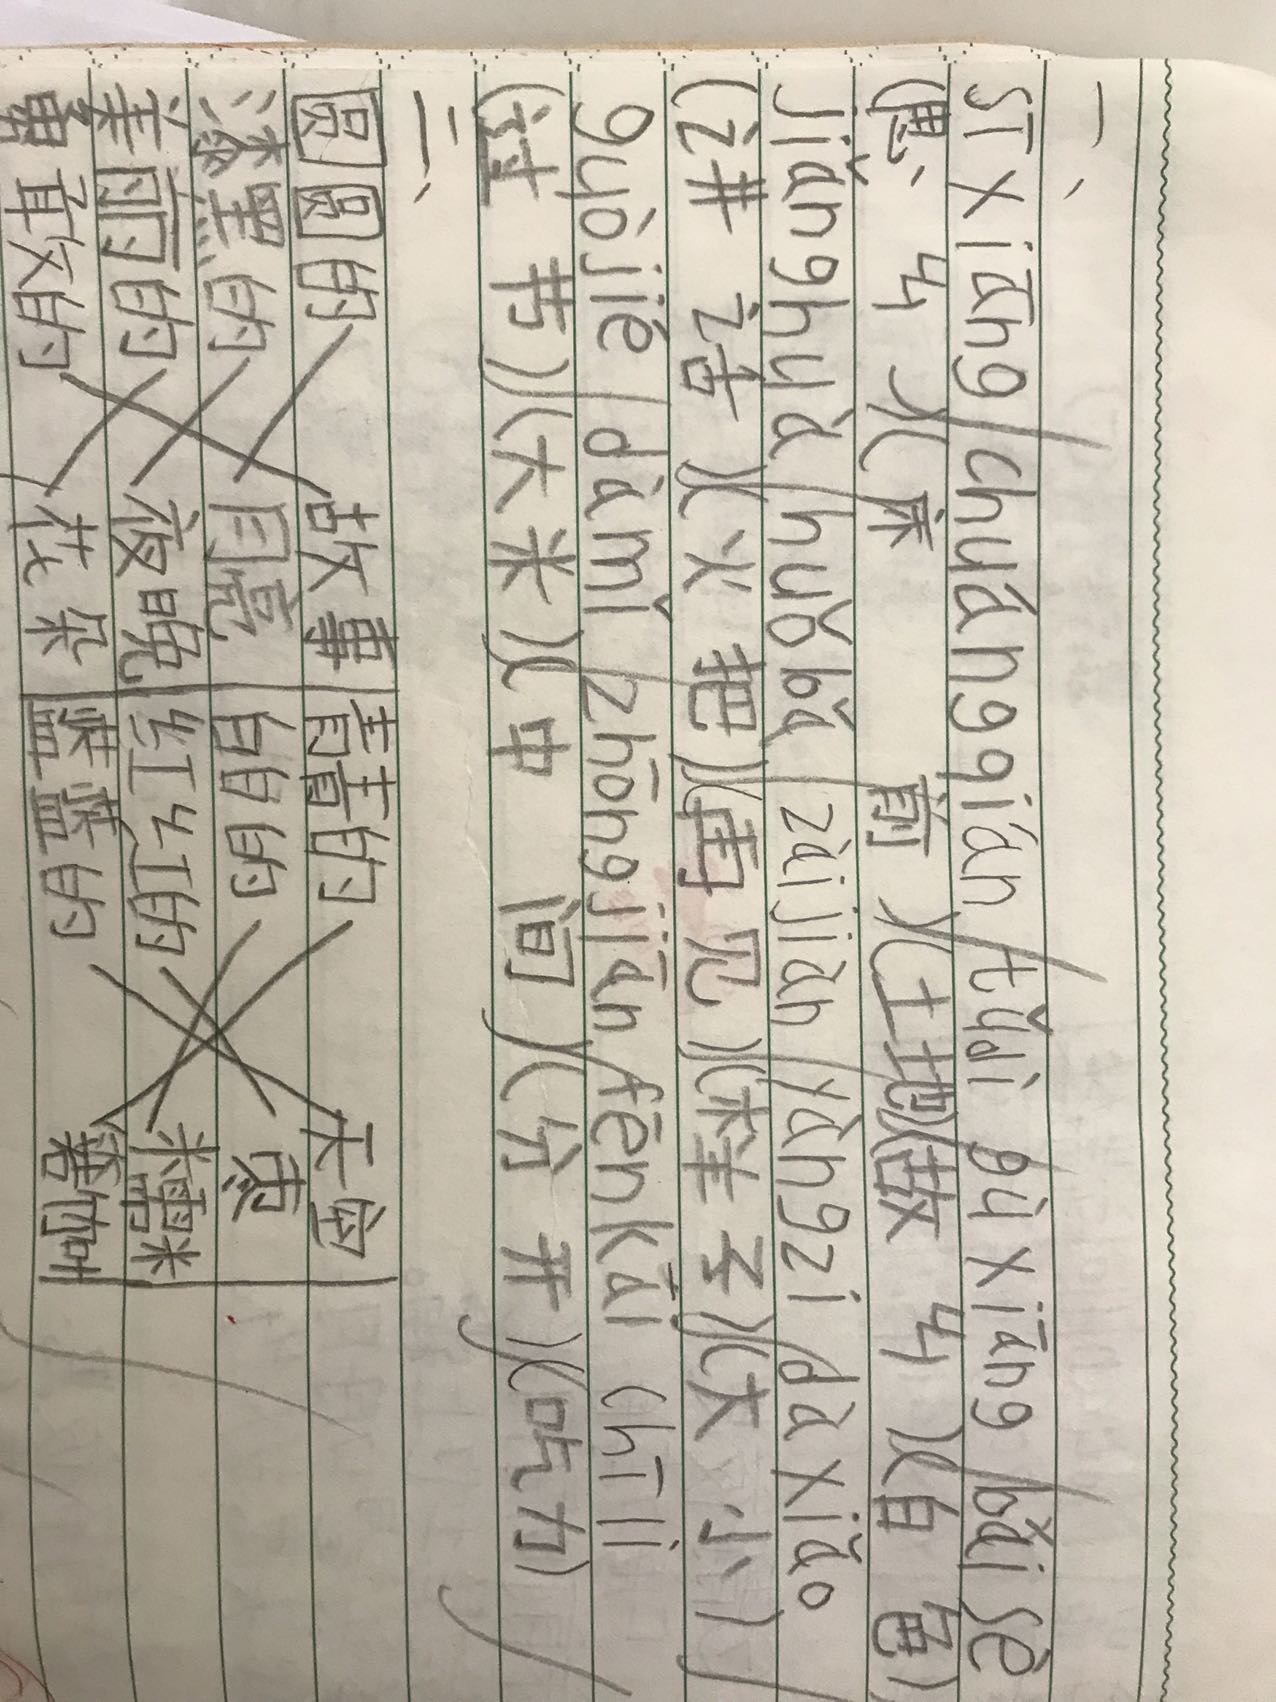 一、
sīxiāng/chuángqián/tǔdì gùxiāng/bái sè
(思乡)(床前)(土地)(故乡)(白色)
jiǎnghuà/huǒbǎ/zàijiàn/yàngzi/dàxiǎo
(讲话)(火把)(再见)(样子)(大小)
guòjié/dàmǐ/zhōngjiān/fēnkāi chīlì
(过节)(大米)(中间)(分开)(吃力)
二、
圆圆的 故事 青青的 天空
漆黑的 月亮 白白的 枣
美丽的 夜晚 红红的 糯米
勇敢的 花朵 蓝蓝的 箬